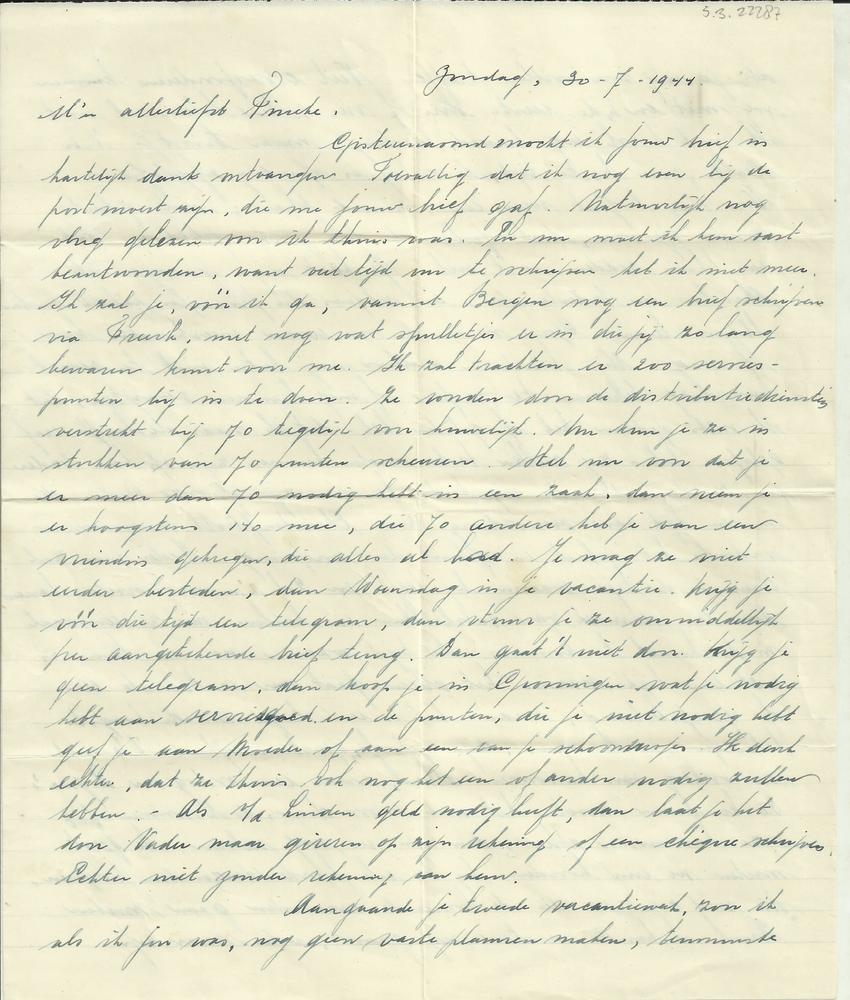 S.3. 22287
Zondag, 30-7-1944.
M'n allerliefst Fineke.
Gisterenavond mocht ik jouw brief in
hartelijk dank ontvangen. Toevallig dat ik nog even bij de
post moest zijn, die me jouw brief gaf. Natuurlijk nog
vlug gelezen voor ik thuis was. En nu moet ik hem vast
beantwoorden, want veel tijd om te schrijven heb ik niet meer.
Ik zal je, vóór ik ga, vanuit Bergen nog een brief schrijven
via Freerk, met nog wat spulletjes er in die jij zo lang
bewaren kunt voor me. Ik zal trachten er 200 servies-
punten bij in te doen. Ze worden door de distributiediensten
verstrekt bij 70 tegelijk voor huwelijk. Nu kun je ze in
stukken van 70 punten scheuren. Stel nu voor dat je
er meer dan 70 nodig hebt in een zaak, dan neem je
er hoogstens 140 mee, die 70 andere heb je van een
vriendin gekregen, die alles al had. Je mag ze niet
eerder besteden, dan Woensdag in je vacantie. Krijg je
vóór die tijd een telegram, dan stuur je ze onmiddellijk
per aangetekende brief terug. Dan gaat 't niet door. Krijg je
geen telegram, dan koop je in Groningen wat je nodig
hebt aan serviesgoed en de punten, die je niet nodig hebt
geef je aan Moeder of aan een van je schoonzusjes. Ik denk
echter, dat ze thuis ook nog het een of ander nodig zullen
hebben. - Als v/d Linden geld nodig heeft, dan laat je het
door Vader maar gireren op zijn rekening of een chèque schrijven,
Echter niet zonder rekening van hem.
Aangaande je tweede vacantieweek, zou ik
als ik jou was, nog geen vaste plannen maken, tenminste